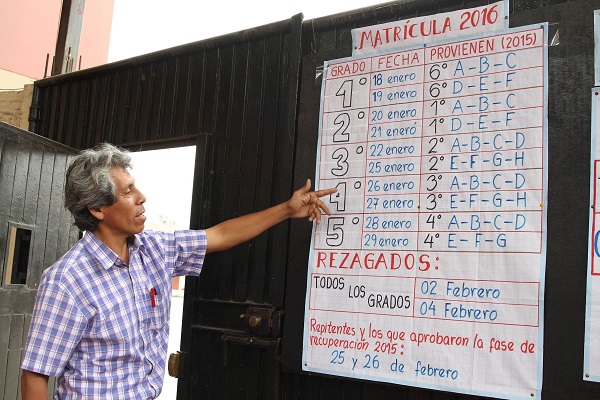 MATRÍCULA 2016
GRADO FECHA PROVIENEN (2015)
1° 18 enero 6° A-B-C
19 enero 6° D-E-F
2° 20 enero 1° A-B-C
21 enero 1° D-E-F
3° 22 enero 2° A-B-C-D
25 enero 2° E-F-G-H
4° 26 enero 3° A-B-C-D
27 enero 3° E-F-G-H
5° 28 enero 4° A-B-C-D
29 enero 4° E-F-G
REZAGADOS:
TODOS LOS GRADOS 02 Febrero
04 Febrero
Repitentes y los que aprobaron la fase de
recuperación 2015:
25 y 26 de febrero